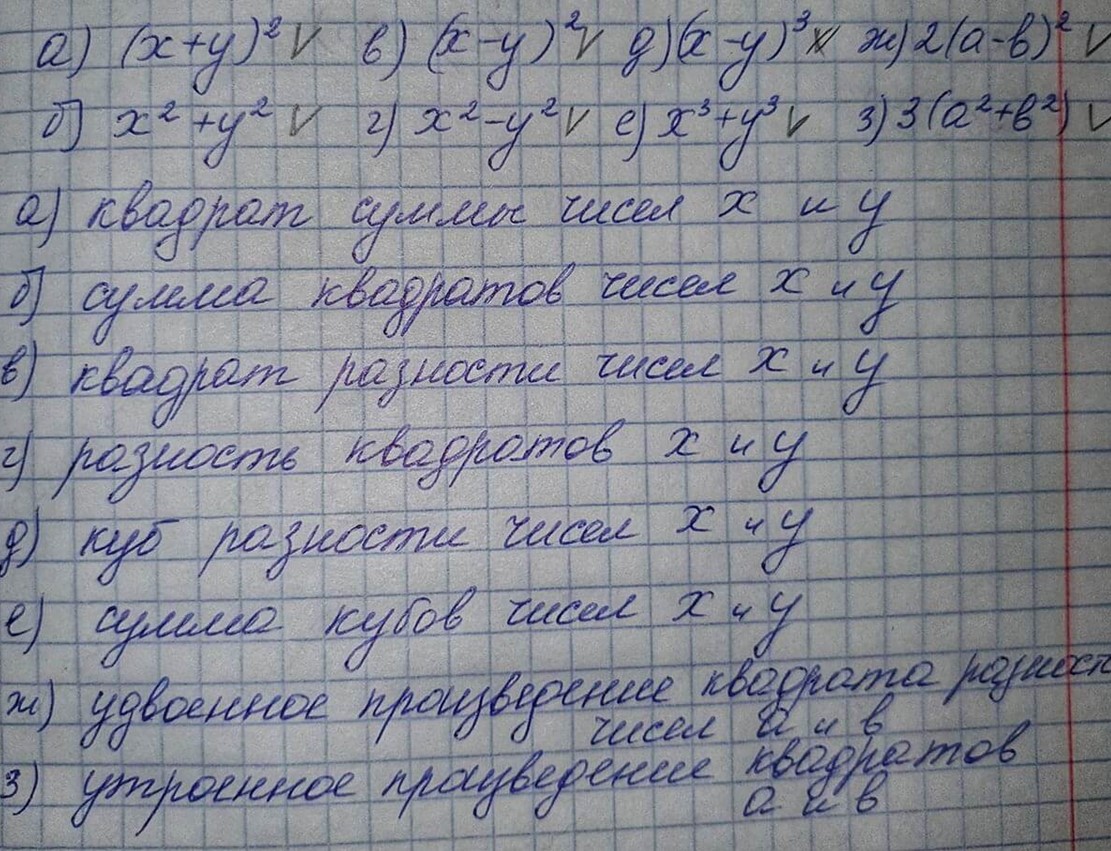 а) (x+y)² V в) (x-y)² V д) (x-y)³ V ж) 2(a-b)² V
б) x²+y² V г) x²-y² V е) x³+y³ V з) 3(a²+b²) V
а) квадрат суммы чисел x и y
б) сумма квадратов чисел x и y
в) квадрат разности чисел x и y
г) разность квадратов x и y
д) куб разности чисел x и y
е) сумма кубов чисел x и y
ж) удвоенное произведение квадрата разност
чисел a и b
з) утроенное працведение квадратов
a и b